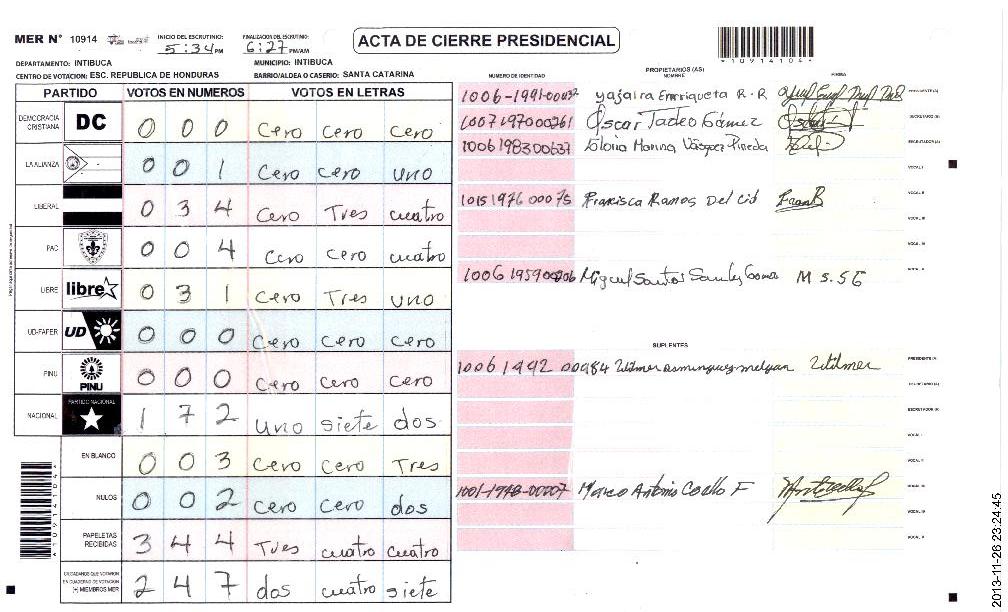 MER N° 10914 INICIO DEL ESCRUTINIO: 5:34 PM FINALIZACION DEL ESCRUTINIO: 6:27 PM/AM
ACTA DE CIERRE PRESIDENCIAL
*10914104*
DEPARTAMENTO: INTIBUCA MUNICIPIO: INTIBUCA
CENTRO DE VOTACION: ESC. REPUBLICA DE HONDURAS BARRIO/ALDEA O CASERIO: SANTA CATARINA
PARTIDO VOTOS EN NUMEROS VOTOS EN LETRAS
DEMOCRACIA CRISTIANA DC 0 0 0 Cero Cero Cero
LA ALIANZA 0 0 1 Cero Cero uno
LIBERAL 0 3 4 Cero Tres cuatro
PAC 0 0 4 Cero cero cuatro
LIBRE libre 0 3 1 Cero Tres uno
UD-FAPER UD 0 0 0 Cero cero cero
PINU PINU 0 0 0 Cero cero cero
NACIONAL PARTIDO NACIONAL 1 7 2 uno siete dos
EN BLANCO 0 0 3 Cero Cero Tres
NULOS 0 0 2 Cero Cero dos
PAPELETAS RECIBIDAS 3 4 4 Tres cuatro cuatro
CIUDADANOS QUE VOTARON EN CUADERNO DE VOTACION (+) MIEMBROS MER 2 4 7 dos cuatro siete
*10914104*
NUMERO DE IDENTIDAD PROPIETARIOS (AS) NOMBRE FIRMA
1006-1991-00037 yajaira Enrriqueta R.R PRESIDENTE (A)
1007197000261 Óscar Tadeo Gómez SECRETARIO (A)
1006198300637 Gloria Marina Vásquez Pineda ESCRUTADOR (A)
VOCAL I
1015197600075 Francisca Ramos Del Cid VOCAL II
VOCAL III
VOCAL IV
1006195900206 Miguel Santos M S.SG VOCAL V
SUPLENTES
1006199200984 Wilmer Wilmer PRESIDENTE (A)
SECRETARIO (A)
ESCRUTADOR (A)
VOCAL I
VOCAL II
1001-1948-00007 Marco Antonio Coello F VOCAL III
VOCAL IV
VOCAL V
2013-11-26 23:24:45